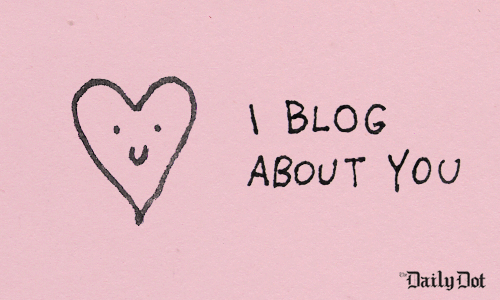 I BLOG
ABOUT YOU
The Daily Dot